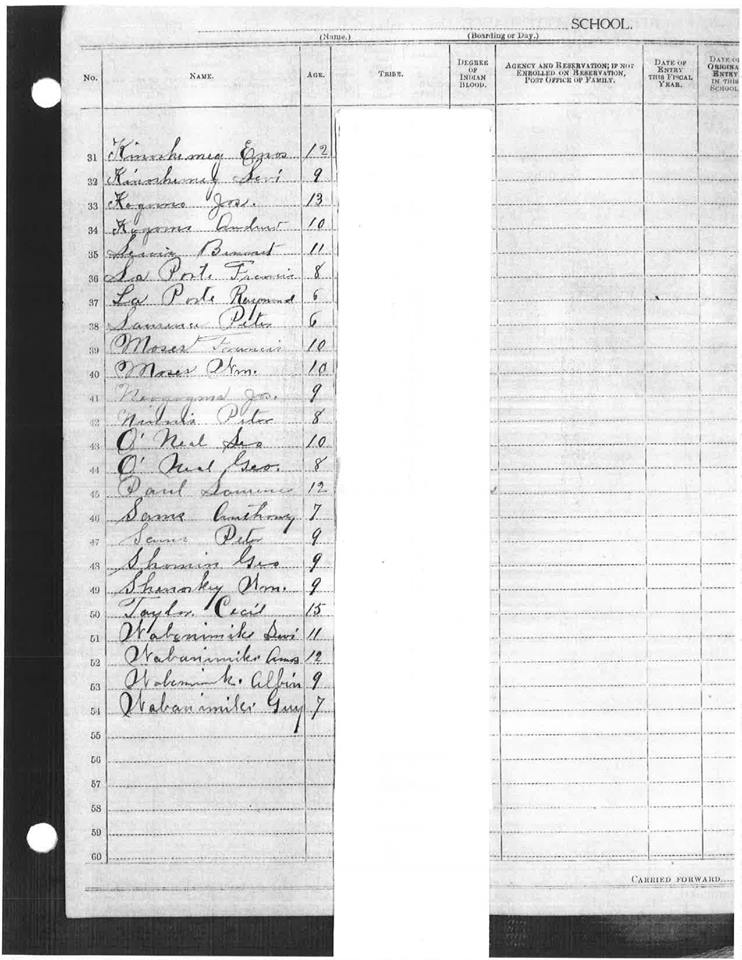 SCHOOL.
(Name.) (Boarding or Day.)
No. NAME. AGE. TRIBE. DEGREE OF INDIAN BLOOD. AGENCY AND RESERVATION; IF NOT ENROLLED ON RESERVATION, POST OFFICE OF FAMILY. DATE OF ENTRY THIS FISCAL YEAR. DATE OF ORIGINAL ENTRY IN THIS SCHOOL
31 Kinoshemeg Enos 12
32 Kinoshemeg Levi 9
33 Kogoma Jos. 13
34 Kogoma Andrew 10
35 11
36 La Porte Francis 8
37 La Porte Raymond 6
38 Lawrence Peter 6
39 Moses Francis 10
40 Moses Wm. 10
41 Jos. 9
42 Peter 8
43 O' Neal Leo 10
44 O' Neal Geo. 8
45 Paul 12
46 Sams Anthony 7
47 Sams Peter 9
48 Shomin Geo 9
49 Shanosky Wm. 9
50 Taylor Cecil 15
51 Wabanimiki Levi 11
52 Wabanimiki Amos 12
53 Albin 9
54 Wabanimiki Guy 7
55
56
57
58
59
60
CARRIED FORWARD